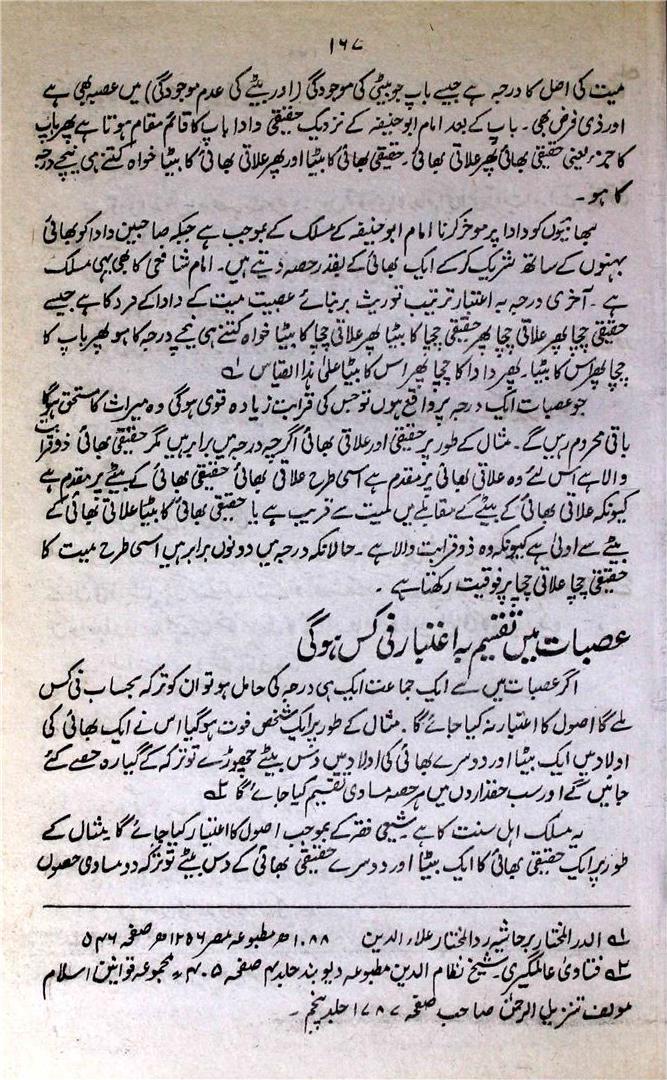 ۱۶۷
میت کی اصل کا درجہ ہے جیسے باپ جو بیٹی کی موجودگی (اور بیٹے کی عدم موجودگی) میں عصبہ بھی ہے
اور ذی فرض بھی۔ باپ کے بعد امام ابو حنیفہ کے نزدیک حقیقی دادا باپ کا قائم مقام ہوتا ہے پھر باپ
کا جزء یعنی حقیقی بھائی پھر علاتی بھائی۔ حقیقی بھائی کا بیٹا اور پھر علاتی بھائی کا بیٹا خواہ کتنے ہی نیچے درجہ
کا ہو۔
بھائیوں کو دادا پر موخر کرنا امام ابو حنیفہ کے مسلک کے بموجب ہے جبکہ صاحبین دادا کو بھائی
بہنوں کے ساتھ شریک کر کے ایک بھائی کے بقدر حصہ دیتے ہیں۔ امام شافعی کا بھی یہی مسلک
ہے۔ آخری درجہ بہ اعتبار ترتیب توریث بربنائے عصبیت میت کے دادا کے فرد کا ہے جیسے
حقیقی چچا پھر علاتی چچا پھر حقیقی چچا کا بیٹا پھر علاتی چچا کا بیٹا خواہ کتنے ہی نیچے درجہ کا ہو پھر باپ کا
چچا پھر اس کا بیٹا۔ پھر دادا کا چچا پھر اس کا بیٹا علیٰ ہذا القیاس ۱؎
جو عصبات ایک درجہ پر واقع ہوں تو جس کی قرابت زیادہ قوی ہوگی وہ میراث کا مستحق ہوگا
باقی محروم رہیں گے۔ مثال کے طور پر حقیقی اور علاتی بھائی اگرچہ درجہ میں برابر ہیں مگر حقیقی بھائی دو قرابت
والا ہے اس لئے وہ علاتی بھائی پر مقدم ہے اسی طرح علاتی بھائی حقیقی بھائی کے بیٹے پر مقدم ہے
کیونکہ علاتی بھائی کے بیٹے کے مقابلے میں میت سے قریب ہے یا حقیقی بھائی کا بیٹا علاتی بھائی کے
بیٹے سے اولیٰ ہے کیونکہ وہ ذو قرابت والا ہے۔ حالانکہ درجہ میں دونوں برابر ہیں اسی طرح میت کا
حقیقی چچا علاتی چچا پر فوقیت رکھتا ہے۔
عصبات میں تقسیم بہ اعتبار فی کس ہوگی
اگر عصبات میں سے ایک جماعت ایک ہی درجہ کی حامل ہو تو ان کو ترکہ بحساب فی کس
ملے گا اصول کا اعتبار نہ کیا جائے گا۔ مثال کے طور پر ایک شخص فوت ہوگیا اس نے ایک بھائی کی
اولاد میں ایک بیٹا اور دوسرے بھائی کی اولاد میں دس بیٹے چھوڑے تو ترکہ کے گیارہ حصے کئے
جائیں گے اور سب حقداروں میں ہر حصہ مساوی تقسیم کیا جائے گا ۲؎
یہ مسلک اہل سنت کا ہے شیعی فقہ کے بموجب اصول کا اعتبار کیا جائے گا مثال کے
طور پر ایک حقیقی بھائی کا ایک بیٹا اور دوسرے حقیقی بھائی کے دس بیٹے تو ترکہ دو مساوی حصوں
۱؎ الدر المختار بر حاشیہ رد المختار علاء الدین ۱۰۸۸ھ مطبوعہ مصر ۱۲۵۶ھ صفحہ ۵۴۶
۲؎ فتاویٰ عالمگیری شیخ نظام الدین مطبوعہ دیوبند جلد ۴ صفحہ ۴۰۵، مجموعہ قوانین اسلام
مولف تنزیل الرحمٰن صاحب صفحہ ۱۷۸۷ جلد پنجم۔